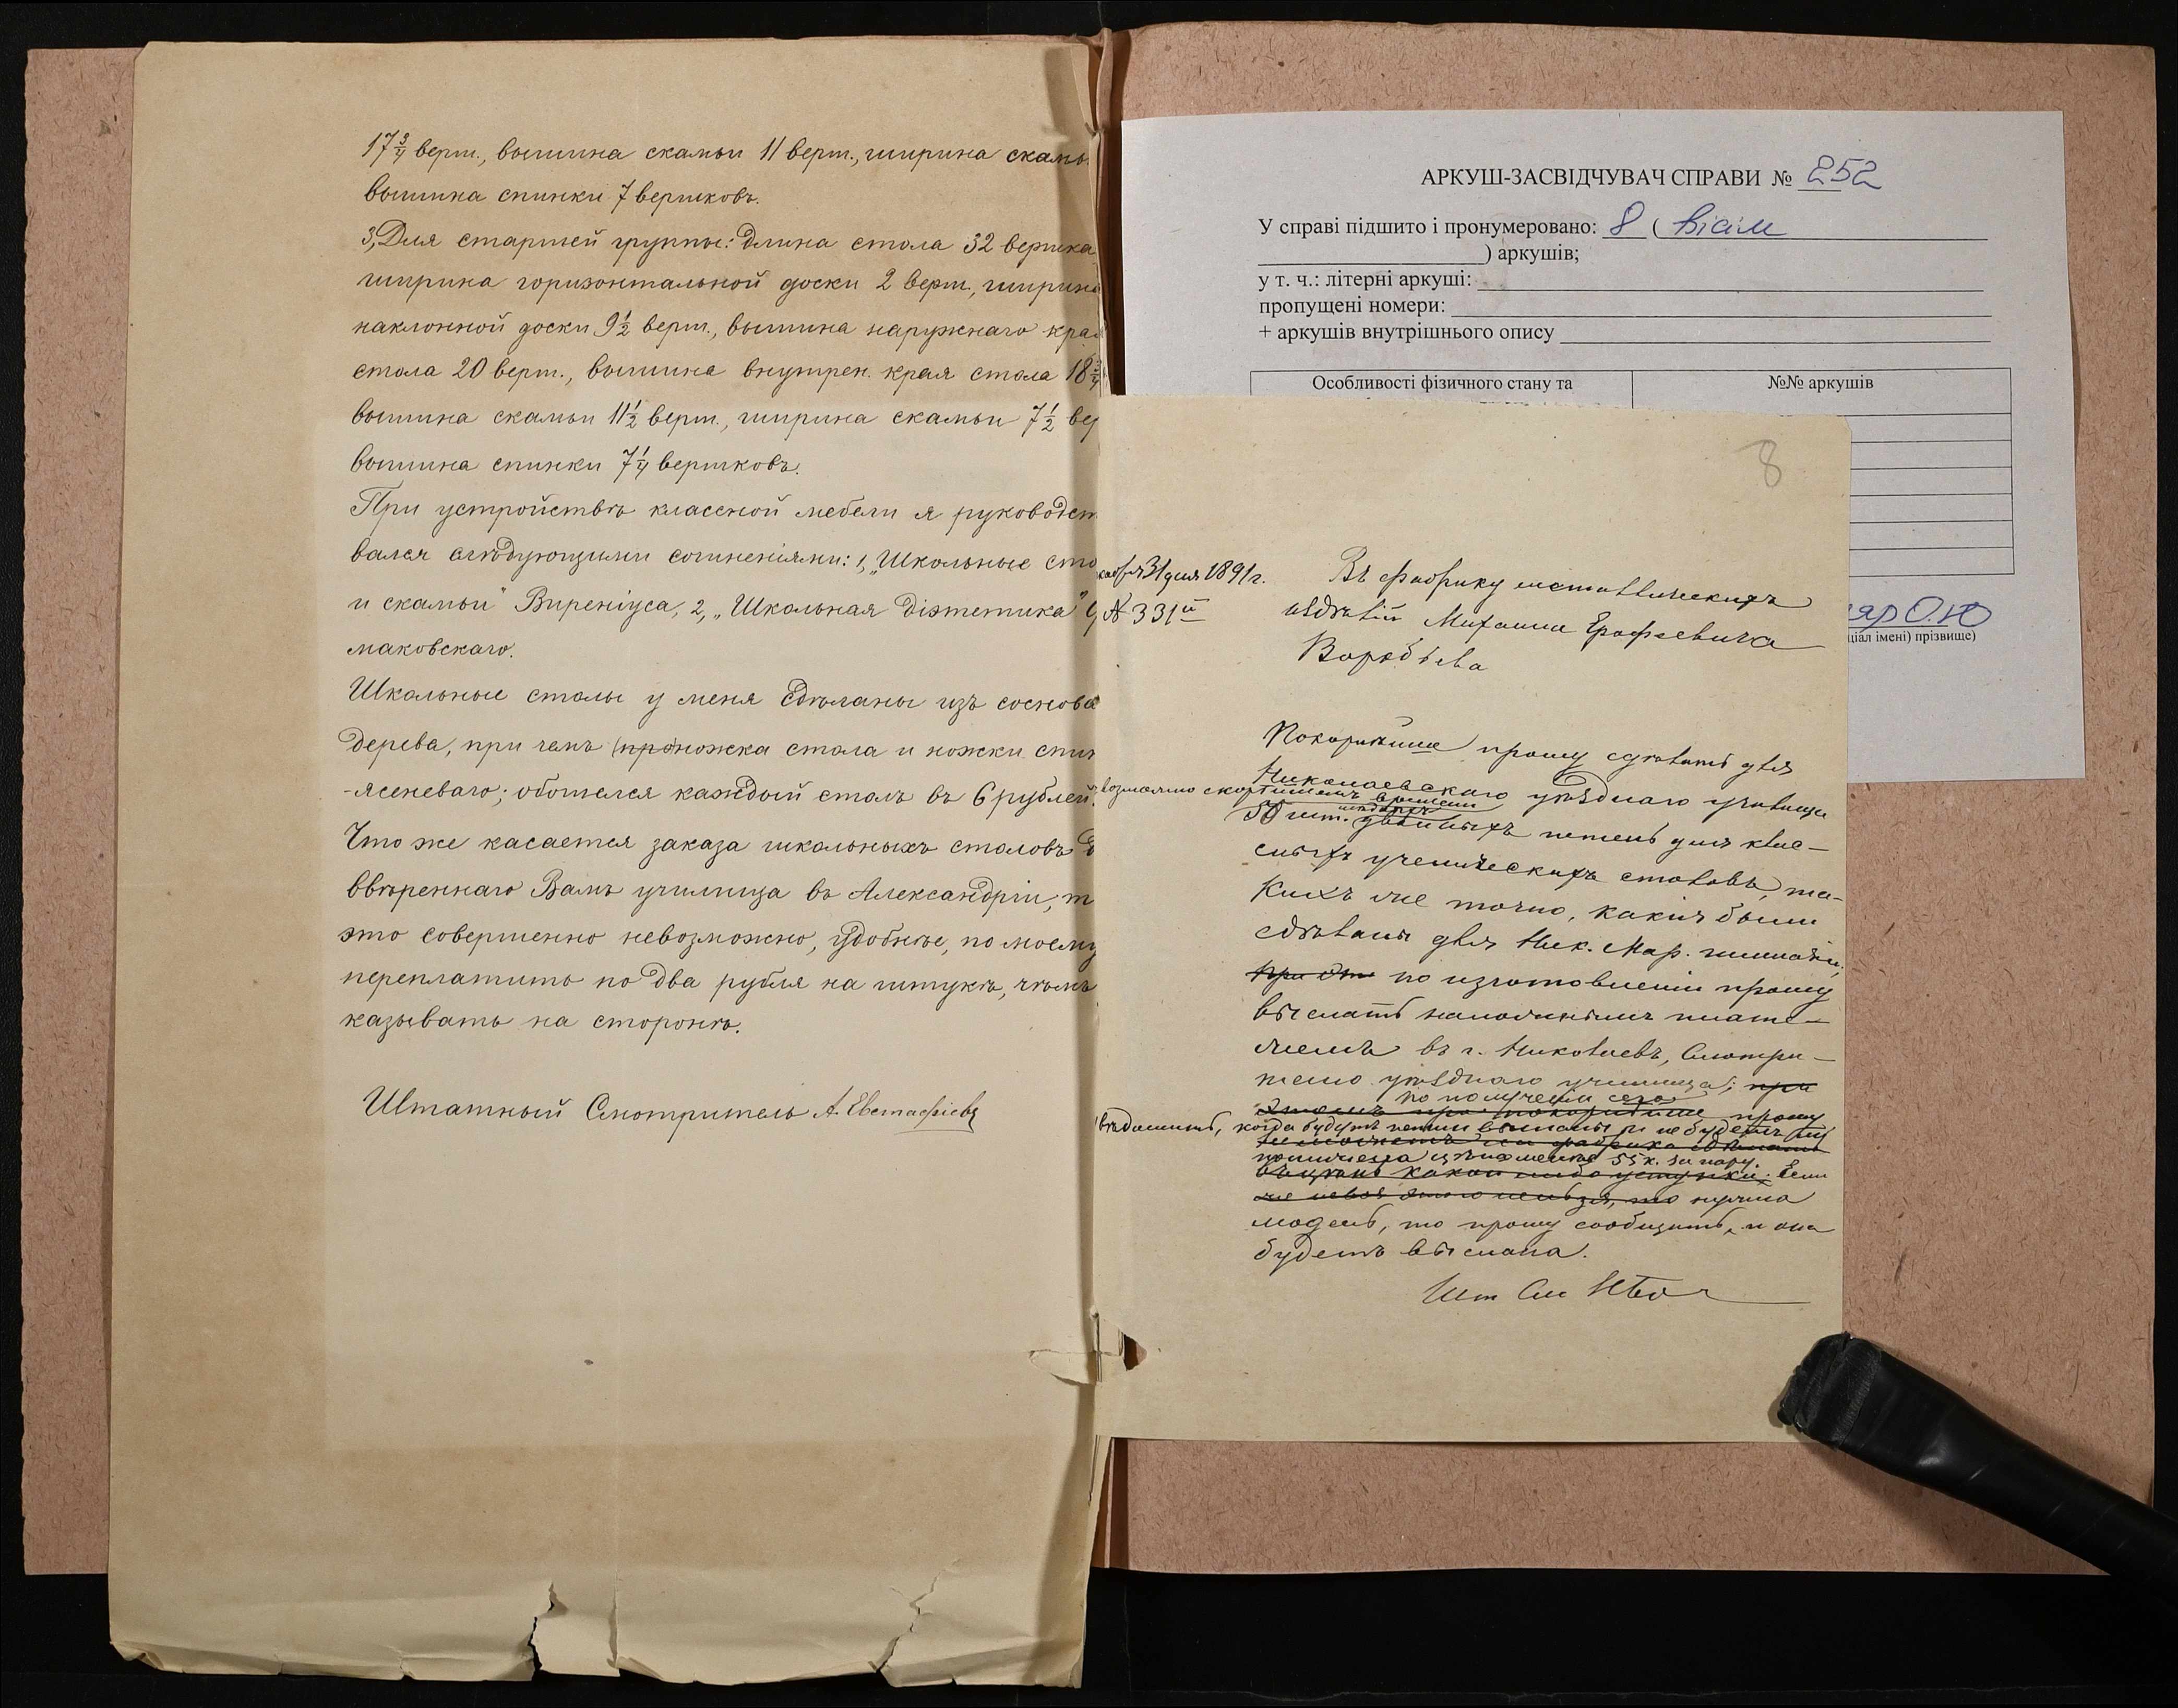 17 3/4 верш., вышина скамьи 11 верш., ширина скамь
вышина спинки 7 вершковъ.
3, Для старшей группы: длина стола 32 вершка
ширина горизонтальной доски 2 верш., ширина
наклонной доски 9 1/2 верш., вышина наружнаго края
стола 20 верш., вышина внутрен. края стола 18 3/4
вышина скамьи 11 1/2 верш., ширина скамьи 7 1/2 вер
вышина спинки 7 1/4 вершковъ.
При устройствѣ классной мебели я руководст
вался слѣдующими сочиненіями: 1, „Школьные сто
и скамьи" Виреніуса, 2, „Школьная діэтетика"
маковскаго.
Школьные столы у меня сдѣланы изъ соснова
дерева, при чемъ проножка стола и ножки спин
-ясеневаго; обошелся каждый столъ въ 6 рублей.
Что же касается заказа школьныхъ столовъ д
ввѣреннаго Вамъ училища въ Александріи, т
это совершенно невозможно, удобнѣе, по моему
переплатить по два рубля на штукѣ, чѣмъ
казывать на сторонѣ.
Штатный Смотритель А. Евстафіевъ
АРКУШ-ЗАСВІДЧУВАЧ СПРАВИ № 252
У справі підшито і пронумеровано: 8 ( вісім
) аркушів;
у т. ч.: літерні аркуші:
пропущені номери:
+ аркушів внутрішнього опису
Особливості фізичного стану та
№№ аркушів
яр О.Ю
ціал імені) прізвище)
8
кабря 31 дня 1891 г.
№ 331
Въ фабрику металлическихъ
издѣлій Михаила Ерофѣевича
Воробьева
Покорнѣйше прошу сдѣлать для
Николаевскаго уѣзднаго училища
возможно скорѣйшемъ времени
50 шт. двойныхъ петель для клас-
сныхъ ученическихъ столовъ, та-
кихъ же точно, какія были
сдѣланы для Ник. Мар. гимназіи;
по изготовленіи прошу
выслать наложеннымъ плате-
жемъ въ г. Николаевъ, Смотри-
телю уѣзднаго училища; при
по полученіи сего
покорнѣйше прошу
вѣдомить, когда будутъ петли высланы и не будетъ ли
понижена цѣна менѣе 55 к. за пару.
какой либо уступки. Если
нужна
модель, то прошу сообщить, и она
будетъ выслана.
Шт См